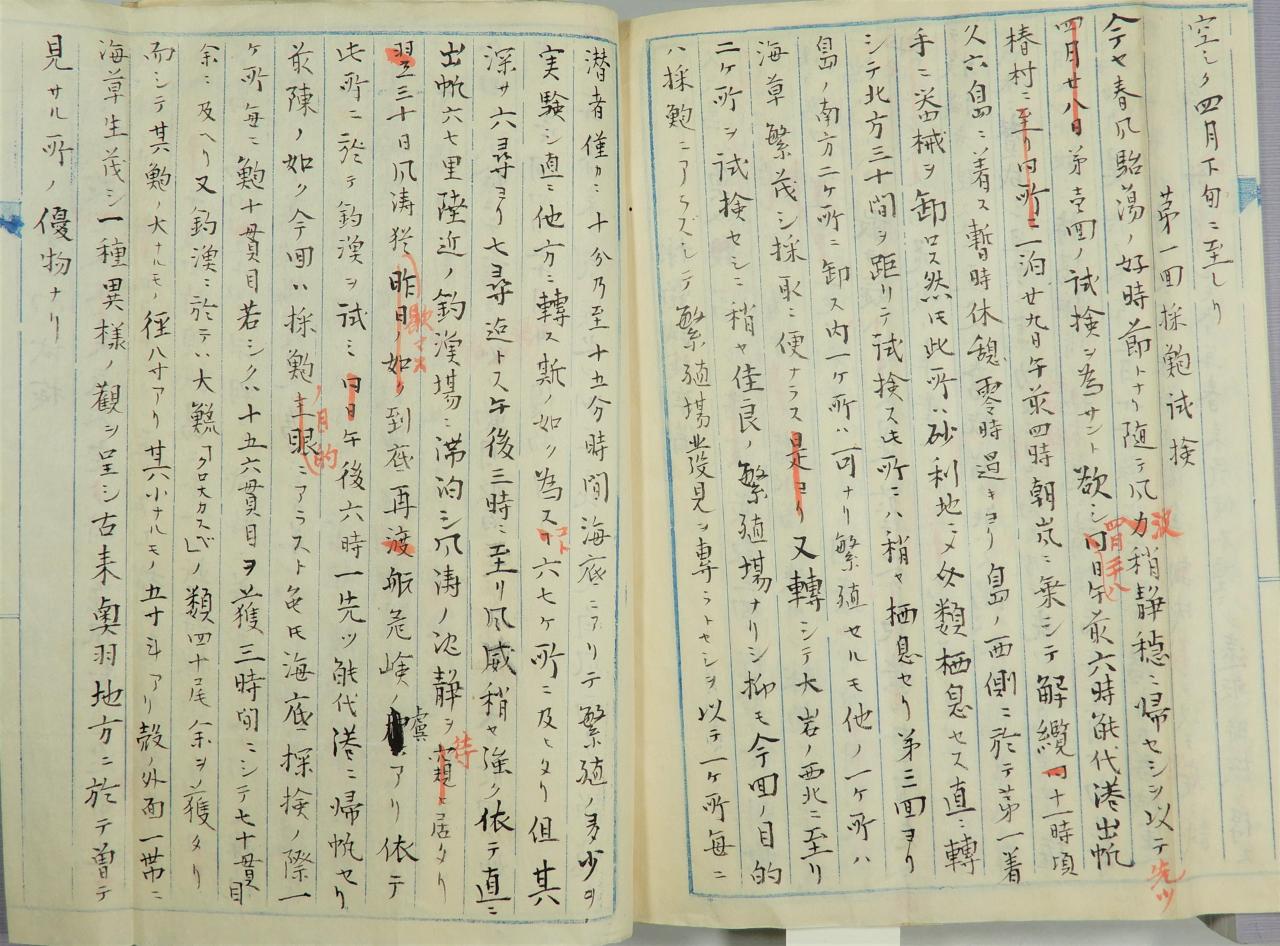 空シク四月下旬ニ至レリ
第一回採鮑試検
今ヤ春風駘蕩ノ好時節トナリ随テ風力波稍静穏ニ帰セシヲ以テ先ツ
四月廿八日第壱回ノ試検ヲ為サント欲シ同日四月廿八午前六時能代港出帆
椿村ニ至リ同所ニ一泊廿九日午前四時朝嵐ニ乗シテ解纜同十一時頃
久六島ニ着ス暫時休憩零時過キヨリ島ノ西側ニ於テ第一着
手ニ器械ヲ卸ロス然ﾄﾓ此所ハ砂利地ニシテ貝類栖息セス直ニ轉
シテ北方三十間ヲ距リテ試検スﾄﾓ所ニハ稍ヤ栖息セリ第三回ヨリ
島ノ南方二ケ所ニ卸ス内一ケ所ハ可ナリ繁殖セルモ他ノ一ケ所ハ
海草繁茂シ採取ニ便ナラス是ヨリ又轉シテ大岩ノ西北ニ至リ
二ケ所ヲ試検セシニ稍ヤ佳良ノ繁殖場ナリシ抑モ今回ノ目的
ハ採鮑ニアラズシテ繁殖場發見ヲ専ラトセシヲ以テ一ケ所毎ニ
潜者僅カニ十分乃至十五分時間海底ニアリテ繁殖ノ多少ヲ
実験シ直ニ他方ニ轉ス斯ノ如ク為スコト六七ケ所ニ及ヒタリ但其
深サ六尋ヨリ七尋迄トス午後三時ニ至リ風威稍ヤ強ク依テ直ニ
出帆六七里陸近ノ釣漁場ニ滞泊シ風涛ノ沈静ヲ待居タリ
翌三十日風涛猶昨日ノ如ク歇マス到底再渡航危険ノ虞アリ依テ
此所ニ於テ釣漁ヲ試ミ同日午後六時一先ツ能代港ニ帰帆セリ
前陳ノ如ク今回ハ採鮑ノ目的主眼ニアラスト雖ﾄﾓ海底探検ノ際一
ケ所毎ニ鮑十貫目若シクハ十五六貫目ヲ獲三時間ニシテ七十貫目
余ニ及ヘリ又釣漁ニ於テハ大鱶「クロ大カスベ」ノ類四十尾余ヲ獲タリ
而シテ其鮑ノ大ナルモノ径八寸アリ其小ナルモノ五寸斗アリ殻ノ外面一帯ニ
海草生茂シ一種異様ノ觀ヲ呈シ古来奥羽地方ニ於テ曽テ
見サル所ノ優物ナリ